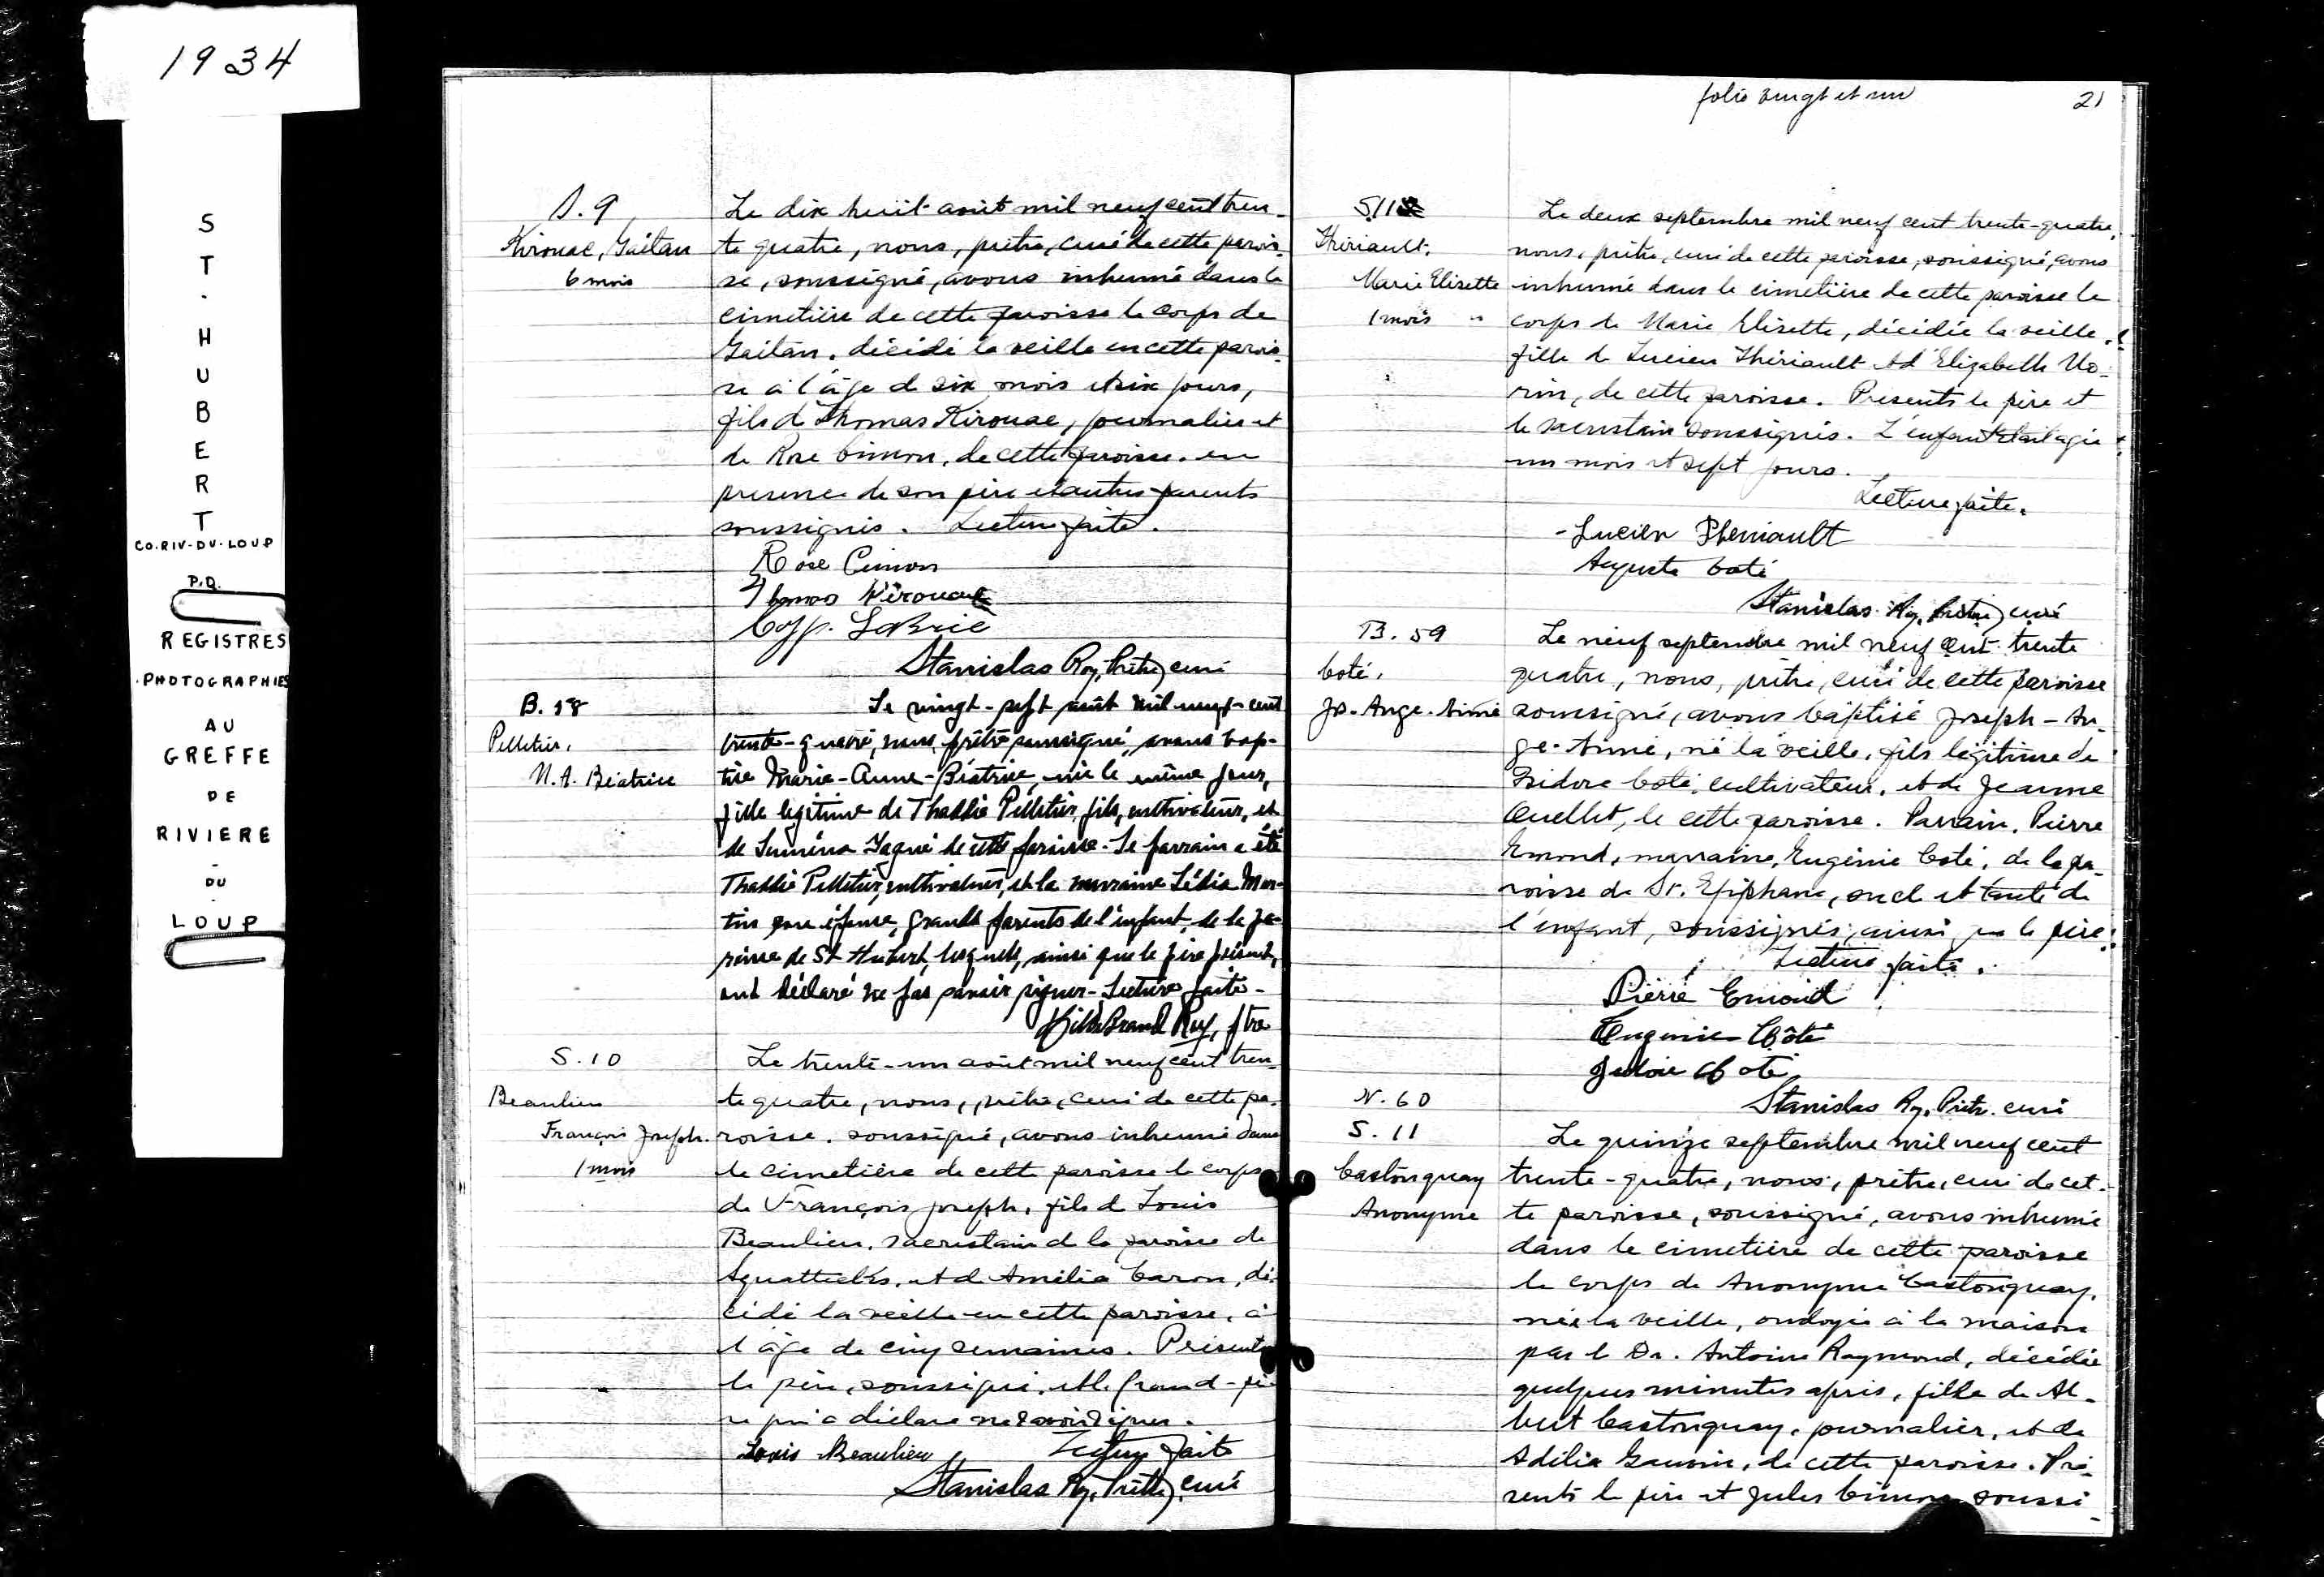 1934
ST. HUBERT
CO. RIV-DU-LOUP
P.Q.
REGISTRES
PHOTOGRAPHIES
AU
GREFFE
DE
RIVIERE
DU
LOUP
S. 9
Kirouac, Gaétan
6 mois
Le dix huit août mil neuf cent tren-
te quatre, nous, prêtre, curé de cette parois-
se, soussigné, avons inhumé dans le
cimetière de cette paroisse le corps de
Gaétan, décédé la veille en cette parois-
se à l'âge de six mois et six jours,
fils de Thomas Kirouac, journalier et
de Rose Cimon, de cette paroisse. en
presence de son père et autres parents
soussignés. Lecture faite.
Rose Cimon
Thomas Kirouac
LaBrie
Stanislas Roy, Prêtre, curé
B. 58
Pelletier,
M. A. Béatrice
Le vingt-sept août mil neuf cent
trente-quatre, nous, prêtre soussigné, avons bap-
tisé Marie-Anne-Béatrice, née le même jour,
fille légitime de Thaddée Pelletier, fils, cultivateur, et
de Luména Gagné de cette paroisse. Le parrain a été
Thaddée Pelletier, cultivateur, et la marraine Lédia Mar-
tin son épouse, grands parents de l'enfant, de la pa-
roisse de St Hubert, lesquels, ainsi que le père présent,
ont déclaré ne pas savoir signer- Lecture faite-
Hildebrand Roy, ptre
S. 10
Beaulieu
François Joseph.
1 mois
Le trente-un août mil neuf cent tren-
te quatre, nous, prêtre, curé de cette pa-
roisse, soussigné, avons inhumé dans
le cimetière de cette paroisse le corps
de François Joseph, fils de Louis
Beaulieu, sacristain de la paroisse de
Squatteck, et de Amélia Caron, dé-
cédé la veille en cette paroisse, à
l'âge de cinq semaines. Présents
le père, soussigné, et le grand-pè-
re qui a déclaré ne savoir signer.
Louis Beaulieu Lecture faite
Stanislas Roy, Prêtre, curé
folio vingt et un 21
S 11
Thériault,
Marie Elisette
1 mois
Le deux septembre mil neuf cent trente-quatre,
nous, prêtre, curé de cette paroisse, soussigné, avons
inhumé dans le cimetière de cette paroisse le
corps de Marie Elisette, décédée la veille,
fille de Lucien Thériault et d'Elizabeth Mo-
rin, de cette paroisse. Présents le père et
le sacristain soussignés. L'enfant était agée
un mois et sept jours.
Lecture faite.
Lucien Theriault
Auguste Coté
Stanislas Roy, Prêtre, curé
B. 59
Coté,
Js. Ange-Aimé
Le neuf septembre mil neuf cent trente
quatre, nous, prêtre, curé de cette paroisse
soussigné, avons baptisé Joseph-An-
ge-Aimé, né la veille, fils légitime de
Isidore Coté, cultivateur, et de Jeanne
Ouellet, de cette paroisse. Parrain, Pierre
Emond, marraine, Eugénie Coté, de la pa-
roisse de St. Epiphane, oncle et tante de
l'enfant, soussignés, ainsi que le père.
Lecture faite.
Pierre Emond
Eugenie Côté
Isidore Coté
Stanislas Roy, Prêtre curé
N. 60
S. 11
Castonguay
Anonyme
Le quinze septembre mil neuf cent
trente-quatre, nous, prêtre, curé de cet-
te paroisse, soussigné, avons inhumé
dans le cimetière de cette paroisse
le corps de Anonyme Castonguay,
née la veille, ondoyée à la maison
par le Dr. Antoine Raymond, décédée
quelques minutes après, fille de Al-
bert Castonguay, journalier, et de
Adélia Gauvin, de cette paroisse. Pré-
sents le père et Jules Cimon soussi-